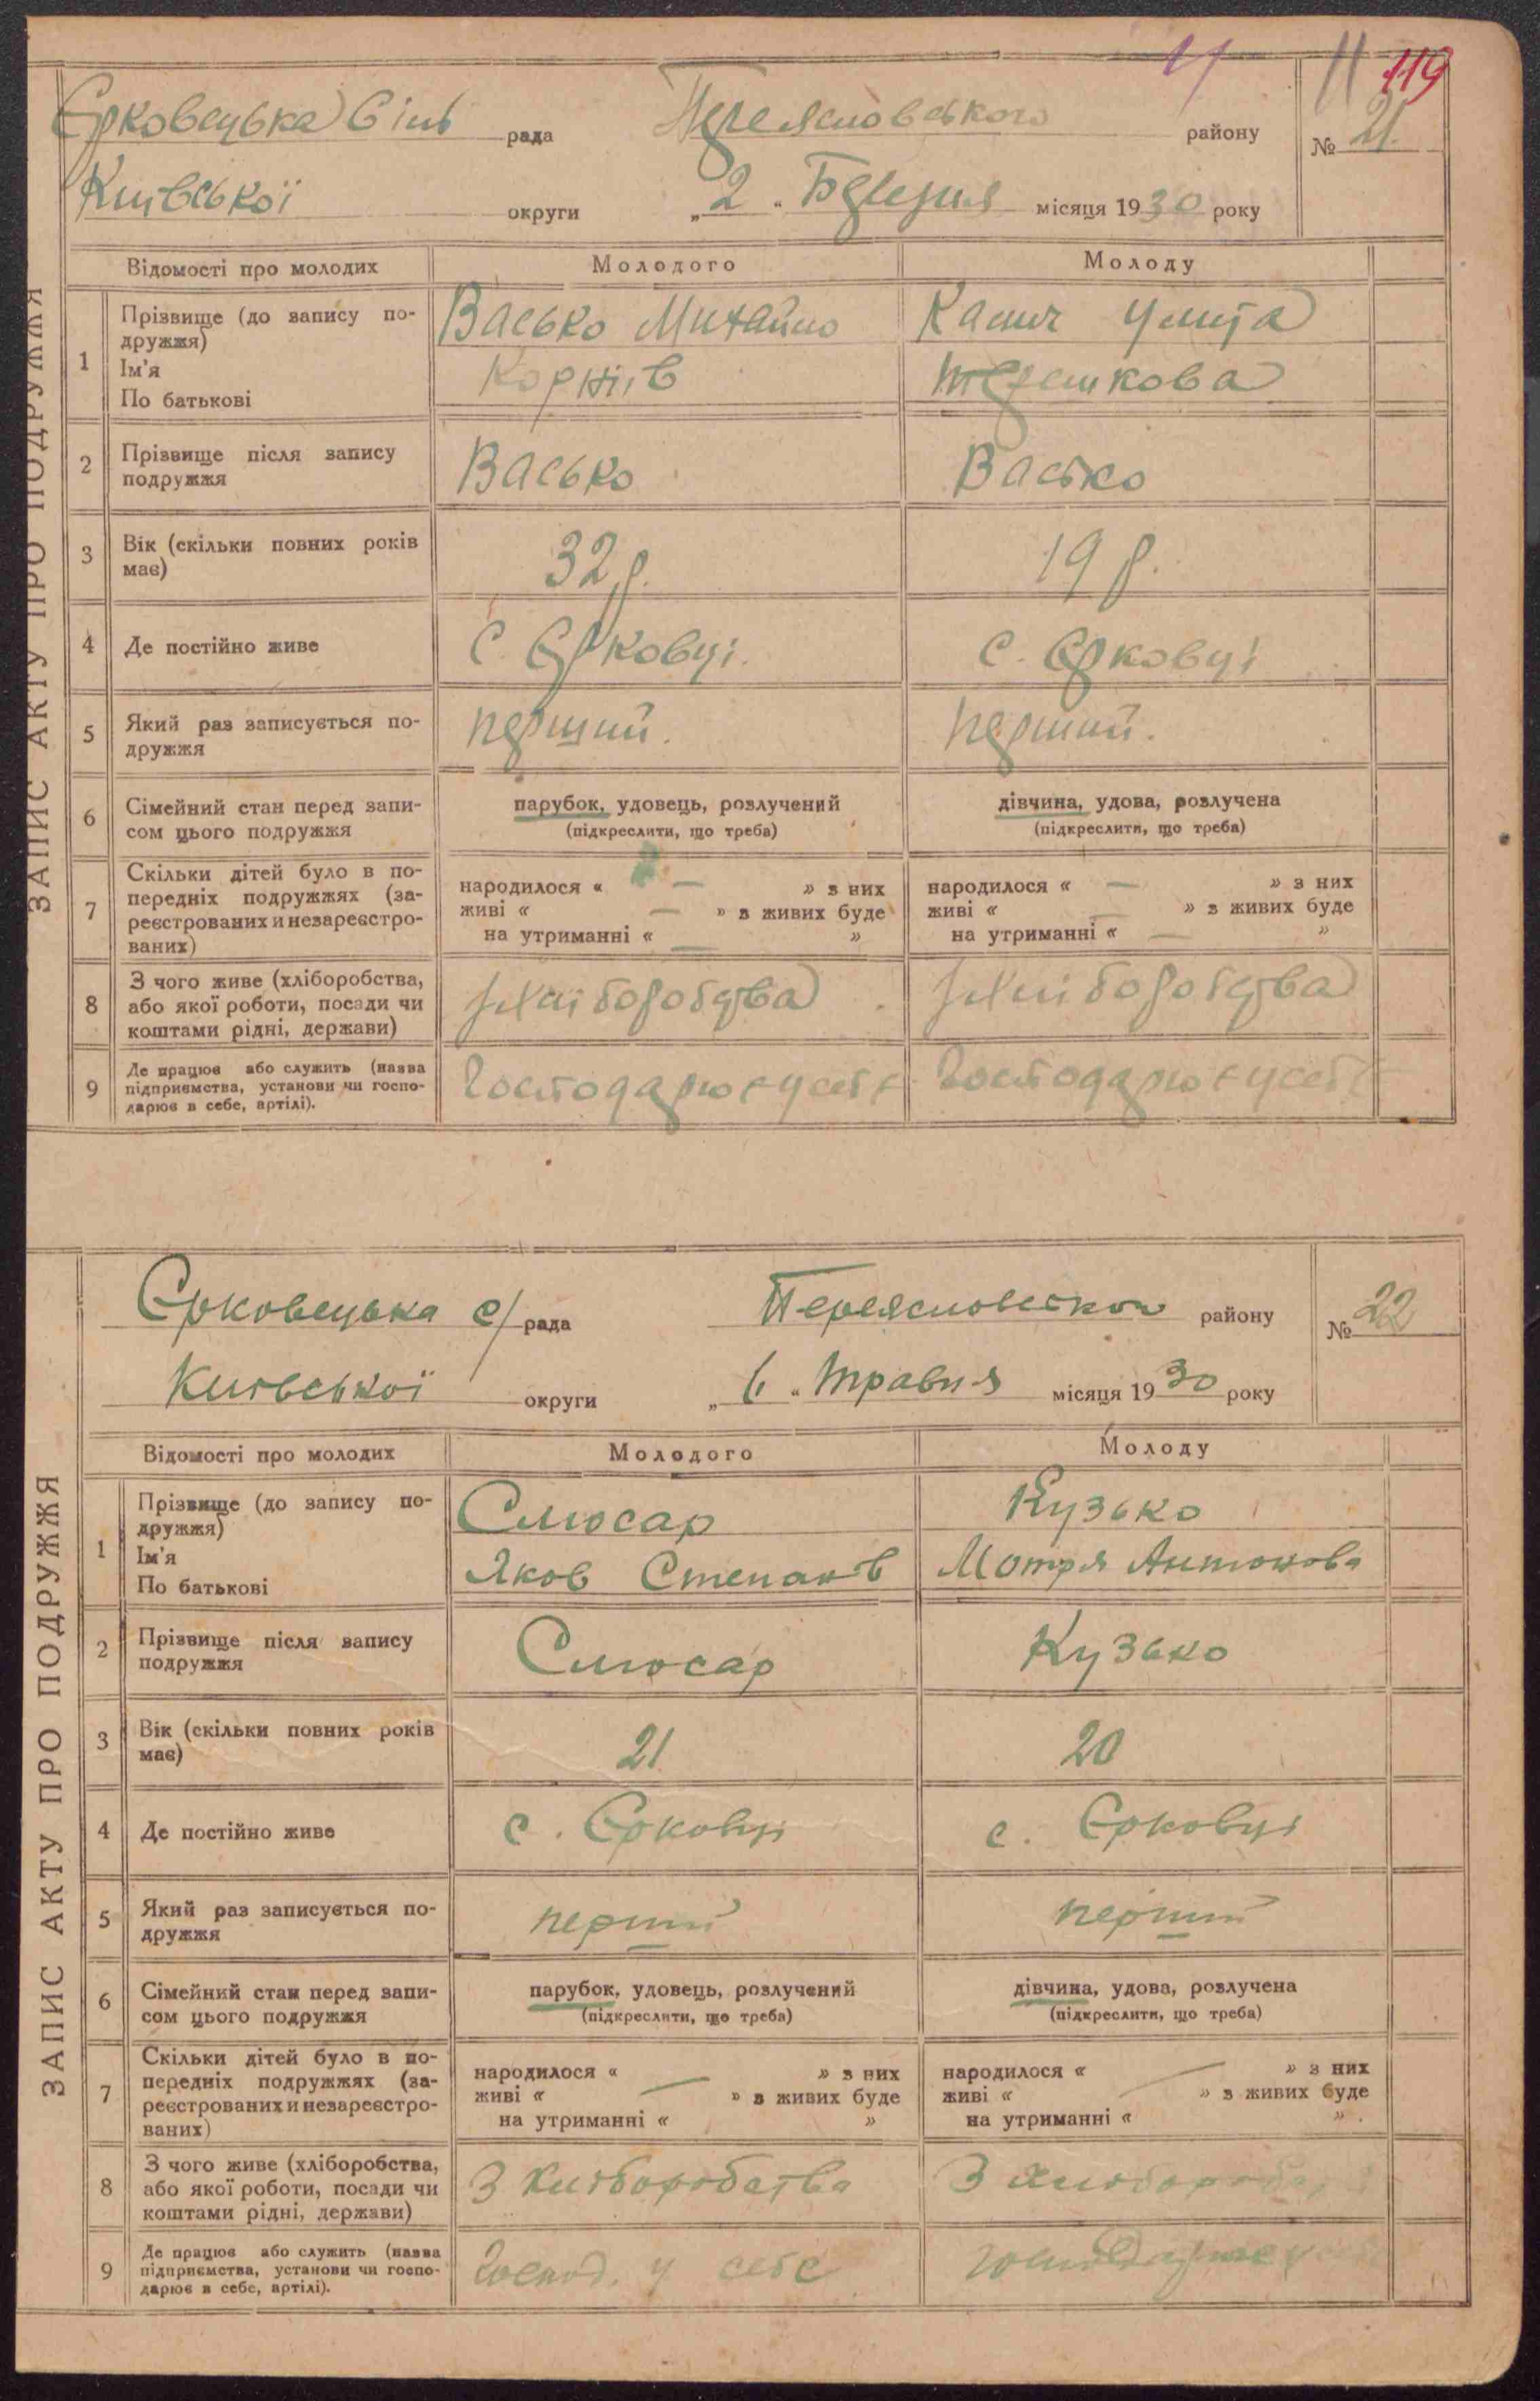 11 119
Єрковецька Сіль рада Переясловського району № 21.
Київської округи „2“ Березня місяця 1930 року
ЗАПИС АКТУ ПРО ПОДРУЖЖЯ
Відомості про молодих Молодого Молоду
1 Прізвище (до запису по-
дружжя)
Ім'я
По батькові
Васько Михайло
Корніїв
Улита
Терешкова
2 Прізвище після запису
подружжя
Васько Васько
3 Вік (скільки повних років
має)
32 р. 19 р.
4 Де постійно живе с. Єрковці. с. Єрковці
5 Який раз записується по-
дружжя
перший. перший.
6 Сімейний стан перед запи-
сом цього подружжя
парубок, удовець, розлучений
(підкреслити, що треба)
дівчина, удова, розлучена
(підкреслити, що треба)
7 Скільки дітей було в по-
передніх подружжях (за-
реєстрованих и незареєстро-
ваних)
народилося « — » з них
живі « — » з живих буде
на утриманні « — »
народилося « — » з них
живі « — » з живих буде
на утриманні « — »
8 З чого живе (хліборобства,
або якої роботи, посади чи
коштами рідні, держави)
зхліборобства зхліборобства
9 Де працює або служить (назва
підприємства, установи чи госпо-
дарює в себе, артілі).
Господарює усебе Господарює усебе
Єрковецька с/рада Переясловского району № 22
Київської округи „6“ Травня місяця 1930 року
ЗАПИС АКТУ ПРО ПОДРУЖЖЯ
Відомості про молодих Молодого Молоду
1 Прізвище (до запису по-
дружжя)
Ім'я
По батькові
Слюсар
Яков Степанів
Кузько
Мотря Антонова
2 Прізвище після запису
подружжя
Слюсар Кузько
3 Вік (скільки повних років
має)
21 20
4 Де постійно живе с. Єрковці с. Єрковці
5 Який раз записується по-
дружжя
перший перший
6 Сімейний стан перед запи-
сом цього подружжя
парубок, удовець, розлучений
(підкреслити, що треба)
дівчина, удова, розлучена
(підкреслити, що треба)
7 Скільки дітей було в по-
передніх подружжях (за-
реєстрованих и незареєстро-
ваних)
народилося « » з них
живі « — » з живих буде
на утриманні « »
народилося « » з них
живі « — » з живих буде
на утриманні « »
8 З чого живе (хліборобства,
або якої роботи, посади чи
коштами рідні, держави)
З хліборобства З
9 Де працює або служить (назва
підприємства, установи чи госпо-
дарює в себе, артілі).
Господ. у себе господарює у